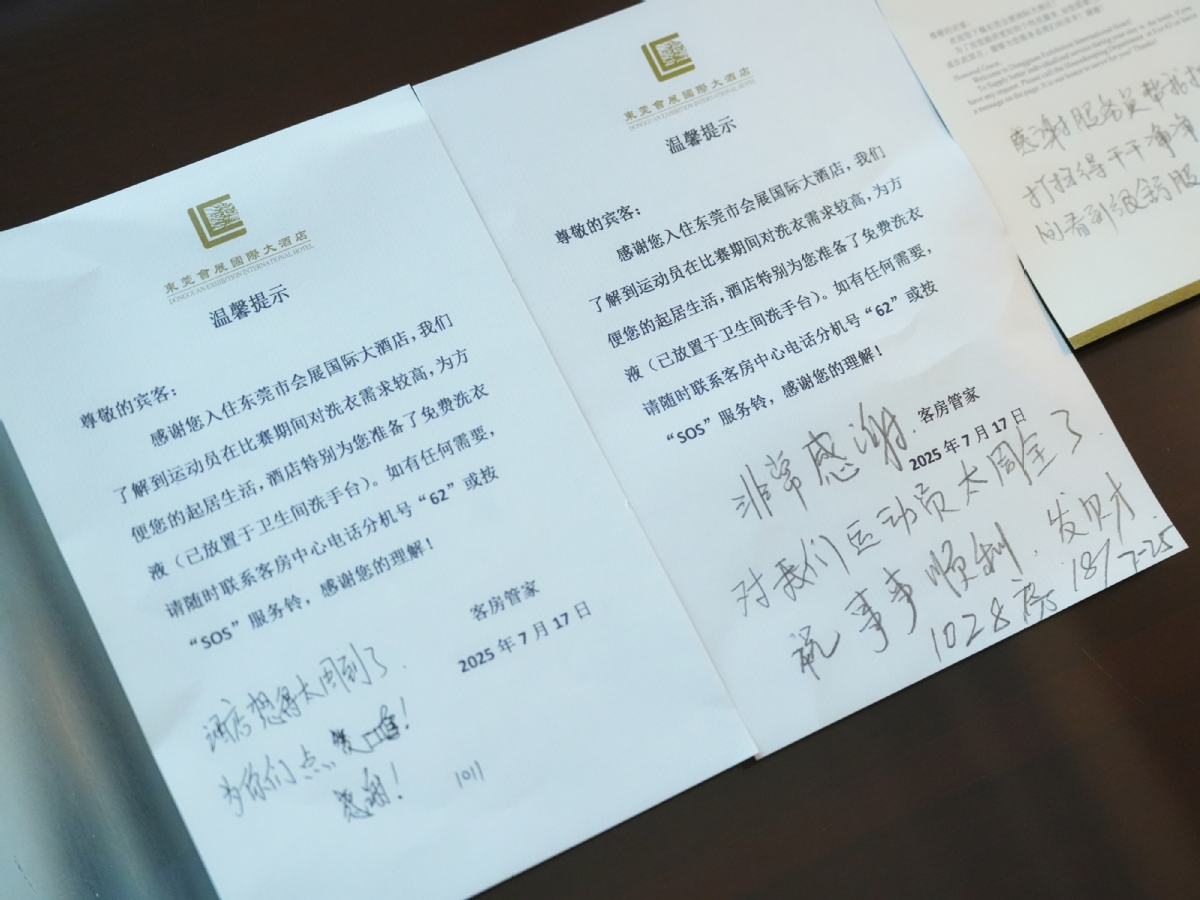 東莞會展國際大酒店
DONGGUAN EXHIBITION INTERNATIONAL HOTEL
温馨提示
尊敬的宾客：
感谢您入住东莞市会展国际大酒店，我们
了解到运动员在比赛期间对洗衣需求较高，为方
便您的起居生活，酒店特别为您准备了免费洗衣
液（已放置于卫生间洗手台）。如有任何需要，
请随时联系客房中心电话分机号“62”或按
“SOS”服务铃，感谢您的理解！
客房管家
2025年7月17日
酒店想得太周到了.
为你们点！
感谢！
1011
東莞會展國際大酒店
DONGGUAN EXHIBITION INTERNATIONAL HOTEL
温馨提示
尊敬的宾客：
感谢您入住东莞市会展国际大酒店，我们
了解到运动员在比赛期间对洗衣需求较高，为方
便您的起居生活，酒店特别为您准备了免费洗衣
液（已放置于卫生间洗手台）。如有任何需要，
请随时联系客房中心电话分机号“62”或按
“SOS”服务铃，感谢您的理解！
客房管家
2025年7月17日
非常感谢.
对我们运动员太周全了.
祝事事顺利.发财
1028房 18/7-25
Honored Guest,
Welcome to Dongguan Exhibition International Hotel!
感谢服务员帮忙
打扫得干干净净
间看到很舒服